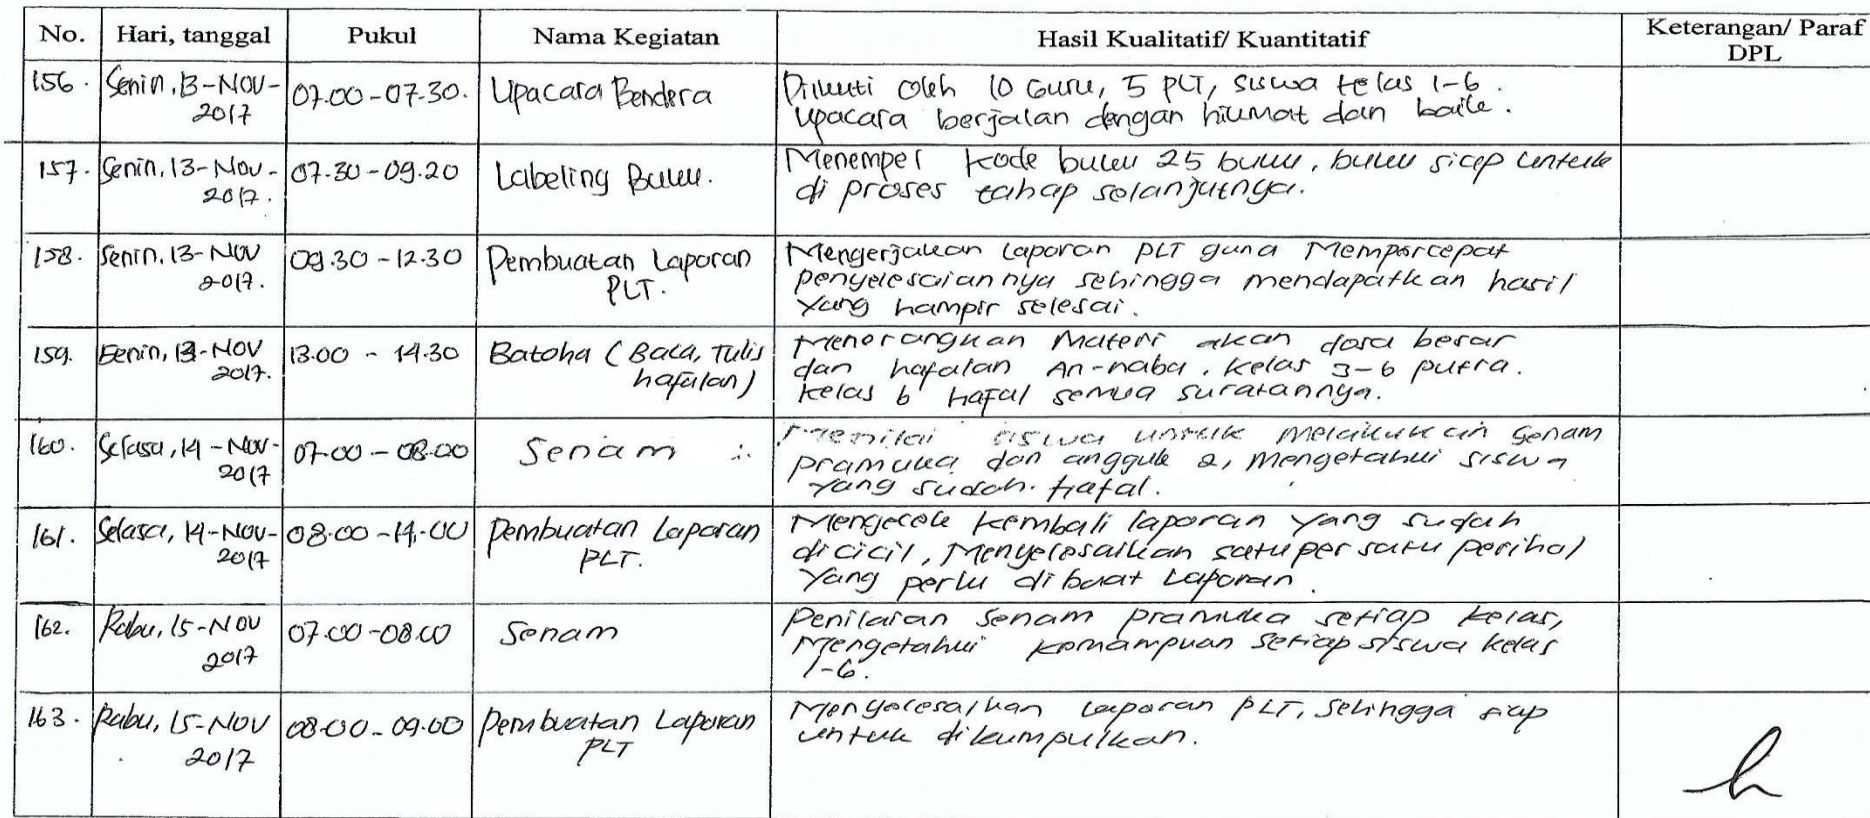 No. Hari, tanggal Pukul Nama Kegiatan Hasil Kualitatif/ Kuantitatif Keterangan/ Paraf
DPL
156. Senin, 13-NOV- 07.00-07.30. Upacara Bendera Diikuti oleh 10 Guru, 5 PLT, siswa kelas 1-6.
2017 Upacara berjalan dengan hikmat dan baik.
157. Senin, 13-Nov- 07.30-09.20 Labeling Buku. Menempel kode buku 25 buku, buku siap untuk
2017. di proses tahap selanjutnya.
158. Senin, 13-NOV 09.30-12.30 Pembuatan Laporan Mengerjakan laporan PLT guna Mempercepat
2017. PLT. penyelesaiannya sehingga mendapatkan hasil
yang hampir selesai.
159. Senin, 13-NOV 13.00 - 14.30 Batoha (Baca, Tulis Menerangkan Materi akan dosa besar
2017. hafalan) dan hafalan An-naba, kelas 3-6 putra.
kelas 6 hafal semua suratannya.
160. Selasa, 14-NOV- 07.00-08.00 Senam Menilai siswa untuk melakukan senam
2017 pramuka dan angguk 2, Mengetahui siswa
yang sudah hafal.
161. Selasa, 14-NOV- 08.00-14.00 Pembuatan Laporan Mengecek kembali laporan yang sudah
2017 PLT. dicicil, Menyelesaikan satu per satu perihal
yang perlu dibuat Laporan.
162. Rabu, 15-NOV 07.00-08.00 Senam Penilaian Senam pramuka setiap kelas,
2017 Mengetahui kemampuan setiap siswa kelas
1-6.
163. Rabu, 15-NOV 08.00-09.00 Pembuatan Laporan Menyelesaikan Laporan PLT, sehingga siap
2017 PLT untuk dikumpulkan.